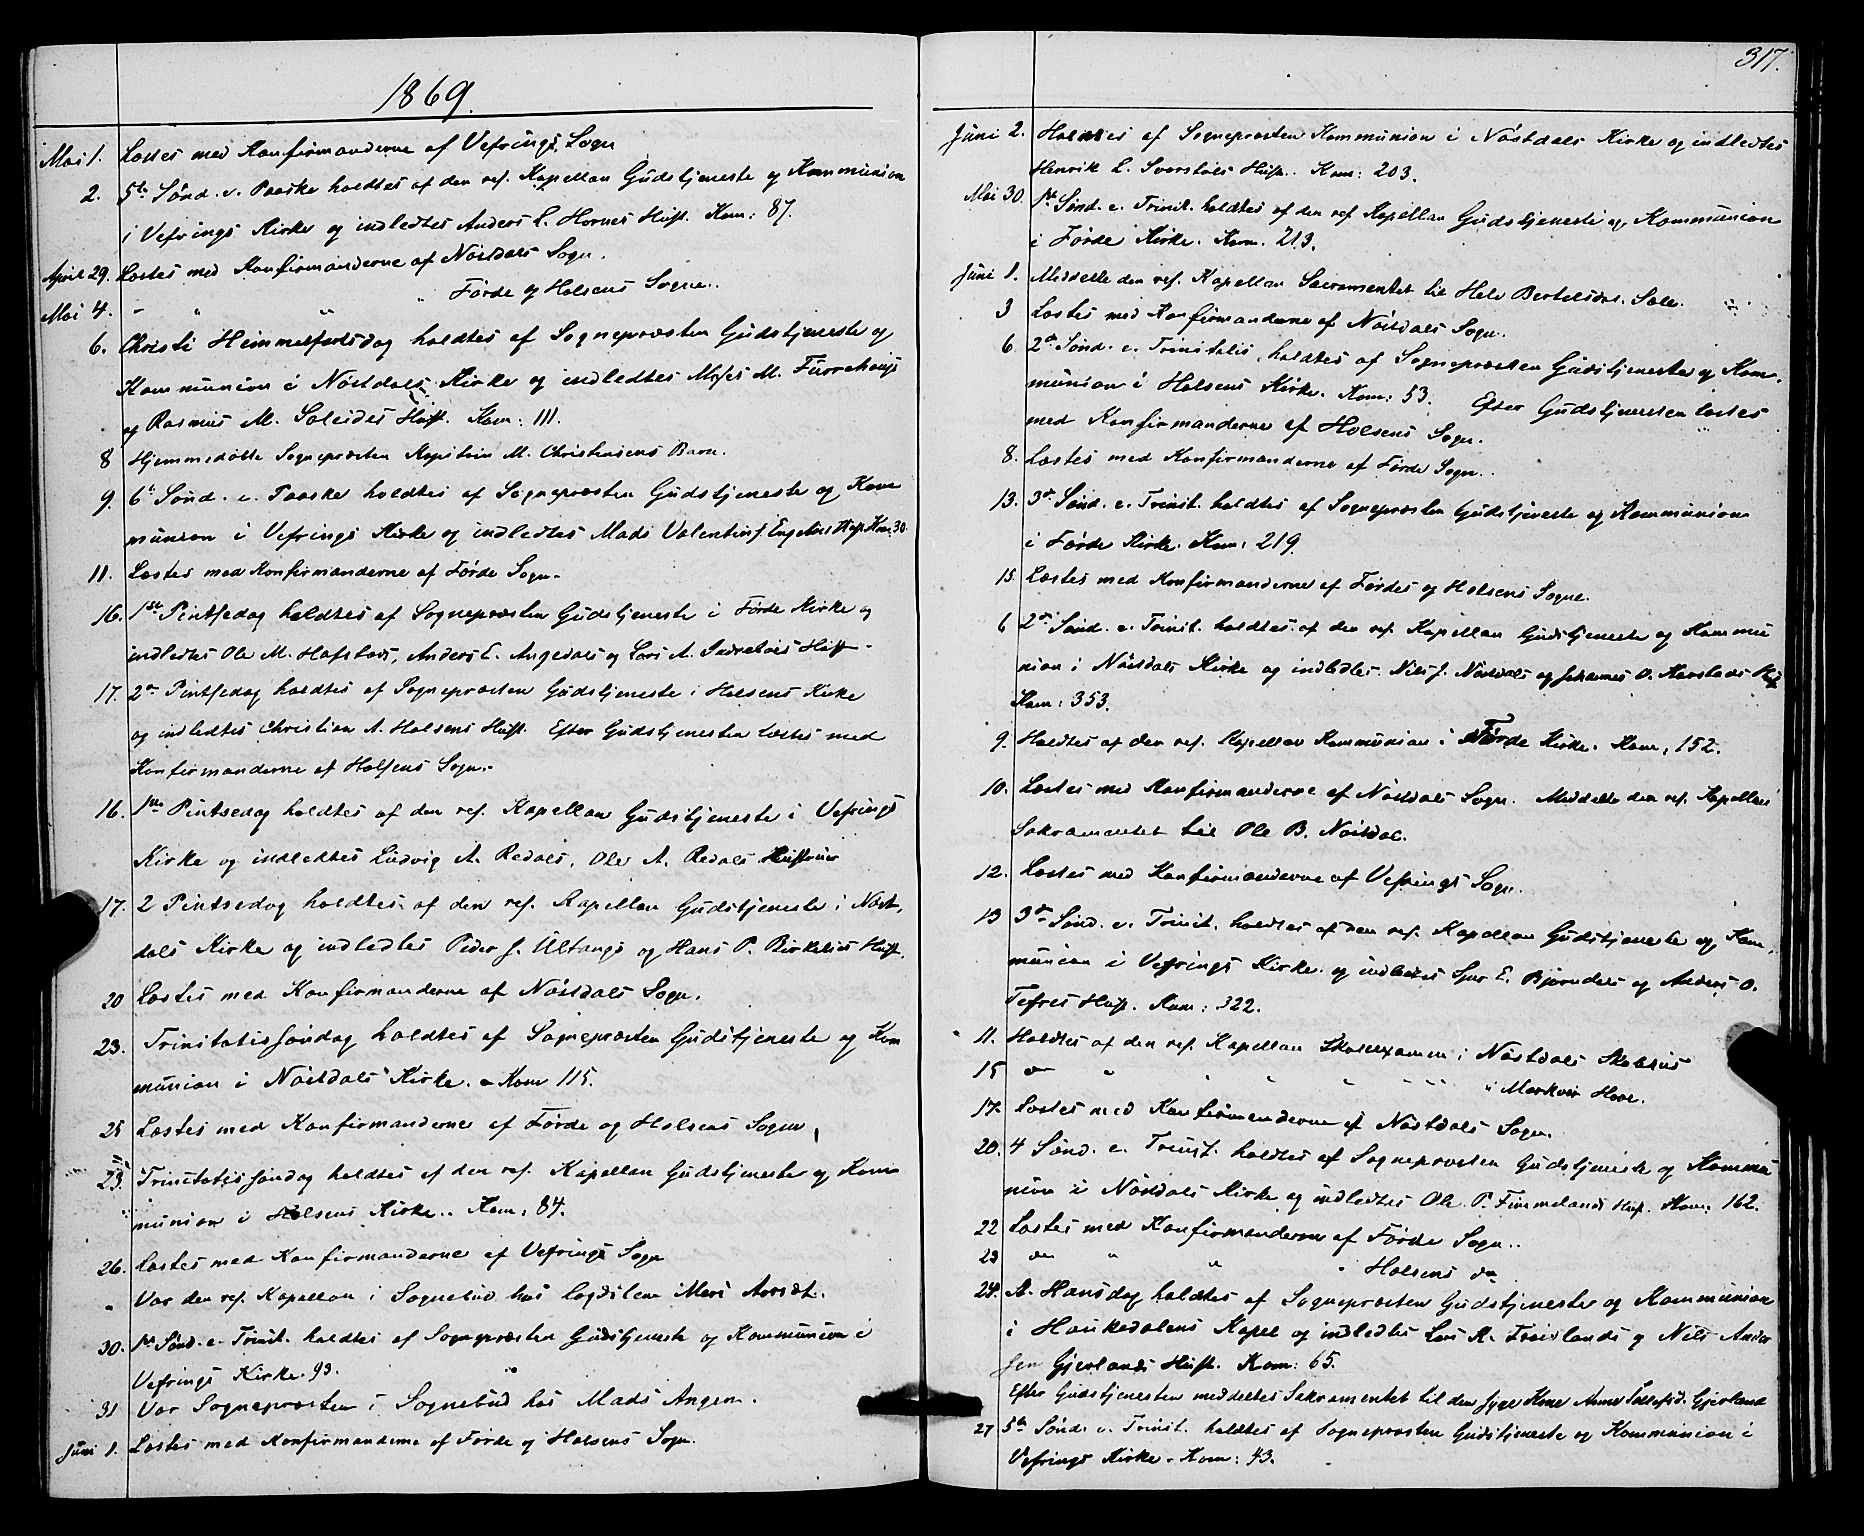 1869.
Mai 1. Læstes med Konfirmanderne af Vefrings Sogn
2. 5te Sønd. e. Paaske holdtes af den res. Kapellan Gudstjeneste og Kommunion
i Vefrings Kirke og indledtes Anders L. Hornes Hust. Kom: 87.
April 29. Læstes med Konfirmanderne af Nöstdals Sogn.
Mai 4. " " " " Förde og Holsens Sogne.
6. Christi Himmelfartsdag holdtes af Sognepræsten Gudstjeneste og
Kommunion i Nöstdals Kirke og indledtes Moses M.
og Rasmus M. Soleides Hust. Kom: 111.
8 Hjemmedöbte Sognepræsten Kapitain M. Christensens Barn.
9. 6te Sönd. e. Paaske holdtes af Sognepræsten Gudstjeneste og Kom
munion i Vefrings Kirke og indledtes Mads Valentin J. Engebös Hust. Kom. 30.
11. Læstes med Konfirmanderne af Förde Sogn.
16. 1ste Pintsedag holdtes af Sognepræsten Gudstjeneste i Förde Kirke og
indledtes Ole M. Hafstads, Anders E. Angedals og Lars A. Hust.
17. 2den Pintsedag holdtes af Sognepræsten Gudstjeneste i Holsens Kirke
og indledtes Christian A. Holsens Hust. Efter Gudstjenesten læstes med
Konfirmanderne af Holsens Sogn.
16. 1ste Pintsedag holdtes af den res. Kapellan Gudstjeneste i Vefrings
Kirke og indledtes Ludvig A. Redals, Ole A. Redals Hustruer
17. 2 Pintsedag holdtes af den res. Kapellan Gudstjeneste i Nöst,
dals Kirke og indledtes Peder J. Ultangs og Hans P. Hust.
20 Læstes med Konfirmanderne af Nöstdals Sogn.
23. Trinitatissöndag holdtes af Sognepræsten Gudstjeneste og Kom
munion i Nöstdals Kirke. Kom 115.
25 Læstes med Konfirmanderne af Förde og Holsens Sogne.
23. Trinitatissöndag holdtes af den res. Kapellan Gudstjeneste og Kom
munion i Holsens Kirke. Kom: 84.
26. Læstes med Konfirmanderne af Vefrings Sogn
" Var den res. Kapellan i Sognebud hos
30. 1ste Sönd. e. Trinit. holdtes af Sognepræsten Gudstjeneste og Kommunion i
Vefrings Kirke. 93.
31 Var Sognepræsten i Sognebud hos Mads Angen.
Juni 1. Læstes med Konfirmanderne af Förde og Holsens Sogn.
317.
Juni 2. Holdtes af Sognepræsten Kommunion i Nöstdals Kirke og indledtes
Henrik L. Hust. Kom: 203.
Mai 30. 1ste Sönd. e. Trinit. holdtes af den res. Kapellan Gudstjeneste og Kommunion
i Förde Kirke. Kom. 213.
Juni 1. Meddelte den res. Kapellan Sacramentet til Bertelsdat. Sæle.
3 Læstes med Konfirmanderne af Nöstdals Sogn.
6. 2den Sönd. e. Trinitatis holdtes af Sognepræsten Gudstjeneste og Kom,
munion i Holsens Kirke. Kom: 53. Efter Gudstjenesten læstes
med Konfirmanderne af Holsens Sogn.
8. Læstes med Konfirmanderne af Förde Sogn.
13. 3die Sönd. e. Trinit. holdtes af Sognepræsten Gudstjeneste og Kommunion
i Förde Kirke. Kom: 219.
15. Læstes med Konfirmanderne af Fördes og Holsens Sogne.
6 2den Sönd. e. Trinit. holdtes af den res. Kapellan Gudstjeneste og Kommu
nion i Nöstdals Kirke og indledtes Nils J. Nöstdals og Johannes O. Hust
Kom: 353.
9. Holdtes af den res. Kapellan Kommunion i Förde Kirke. Kom, 152.
10. Læstes med Konfirmanderne af Nöstdals Sogn. Meddelte den res. Kapellan
Sakramentet til Ole B. Nöstdal.
12. Læstes med Konfirmanderne af Vefrings Sogn.
13 3die Sönd. e. Trinit. holdtes af den res. Kapellan Gudstjeneste og Kom,
munion i Vefrings Kirke og indledtes E. og Anders O.
Tefres Hust. Kom: 322.
11. Holdtes af den res. Kapellan Skoleexamen i Nöstdals Skolehus
15 do " " " " " " " i
17. Læstes med Konfirmanderne af Nöstdals Sogn.
20. 4 Sönd. e. Trinit. holdtes af Sognepræsten Gudstjeneste og Kommu
nion i Nöstdals Kirke og indledtes Ole P. Fimmelands Hust. Kom: 162.
22 Læstes med Konfirmanderne af Förde Sogn.
23 do " " " Holsens do
24. St. Hansdag holdtes af Sognepræsten Gudstjeneste og Kommunion
i Haukedalens Kapel og indledtes Lars R. og Nils Ander
sen Gjerlands Hust. Kom: 65.
Efter Gudstjenesten meddeltes Sakramentet til den syge Kone Anne Gjerland
27 5te Sönd. e. Trinit. holdtes af Sognepræsten Gudstjeneste og Kommunion i
Vefrings Kirke. Kom: 43.